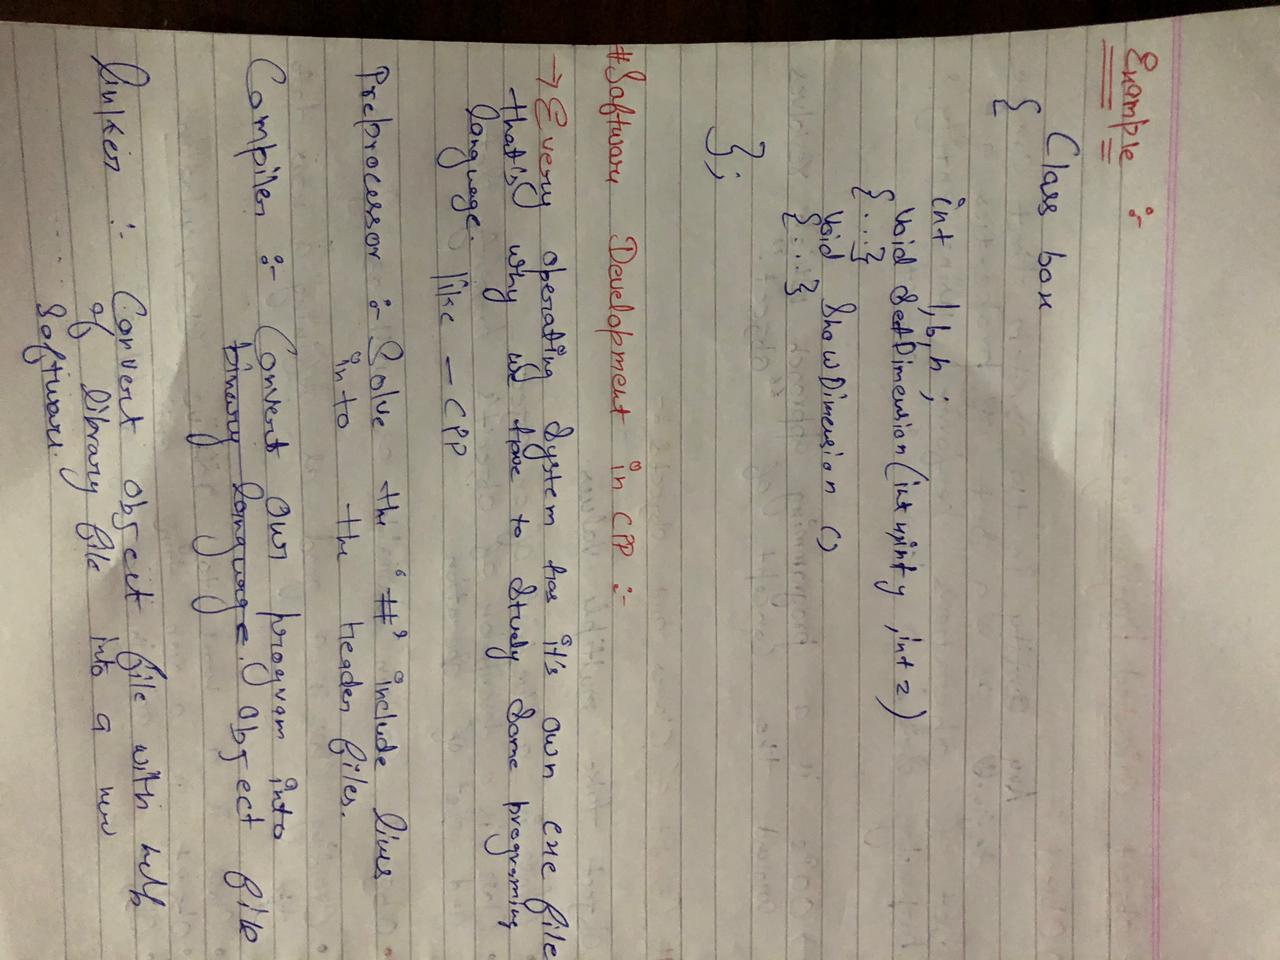 Example :-
Class box
{
int l, b, h ;
void SetDimension (int x, int y , int z)
{ ... }
void ShowDimension ()
{ ... }
};
# Software Development in CPP :-
→ Every operating System has it's own exe file
that's why we have to Study Some programing
language. like - CPP
Preprocessor :- Solve the '#' include lines
into the header files.
Compiler :- Convert our program into
binary language. Object file
linker :- Convert object file with help
of library file into a new
Software.